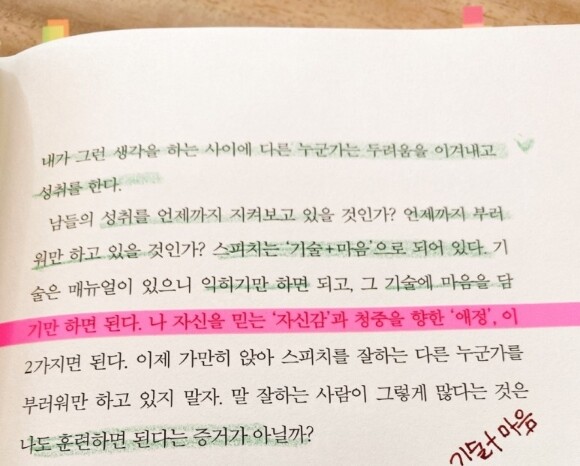 내가 그런 생각을 하는 사이에 다른 누군가는 두려움을 이겨내고
성취를 한다.
남들의 성취를 언제까지 지켜보고 있을 것인가? 언제까지 부러
워만 하고 있을 것인가? 스피치는 ‘기술+마음’으로 되어 있다. 기
술은 매뉴얼이 있으니 익히기만 하면 되고, 그 기술에 마음을 담
기만 하면 된다. 나 자신을 믿는 ‘자신감’과 청중을 향한 ‘애정’, 이
2가지면 된다. 이제 가만히 앉아 스피치를 잘하는 다른 누군가를
부러워만 하고 있지 말자. 말 잘하는 사람이 그렇게 많다는 것은
나도 훈련하면 된다는 증거가 아닐까?
기술+마음